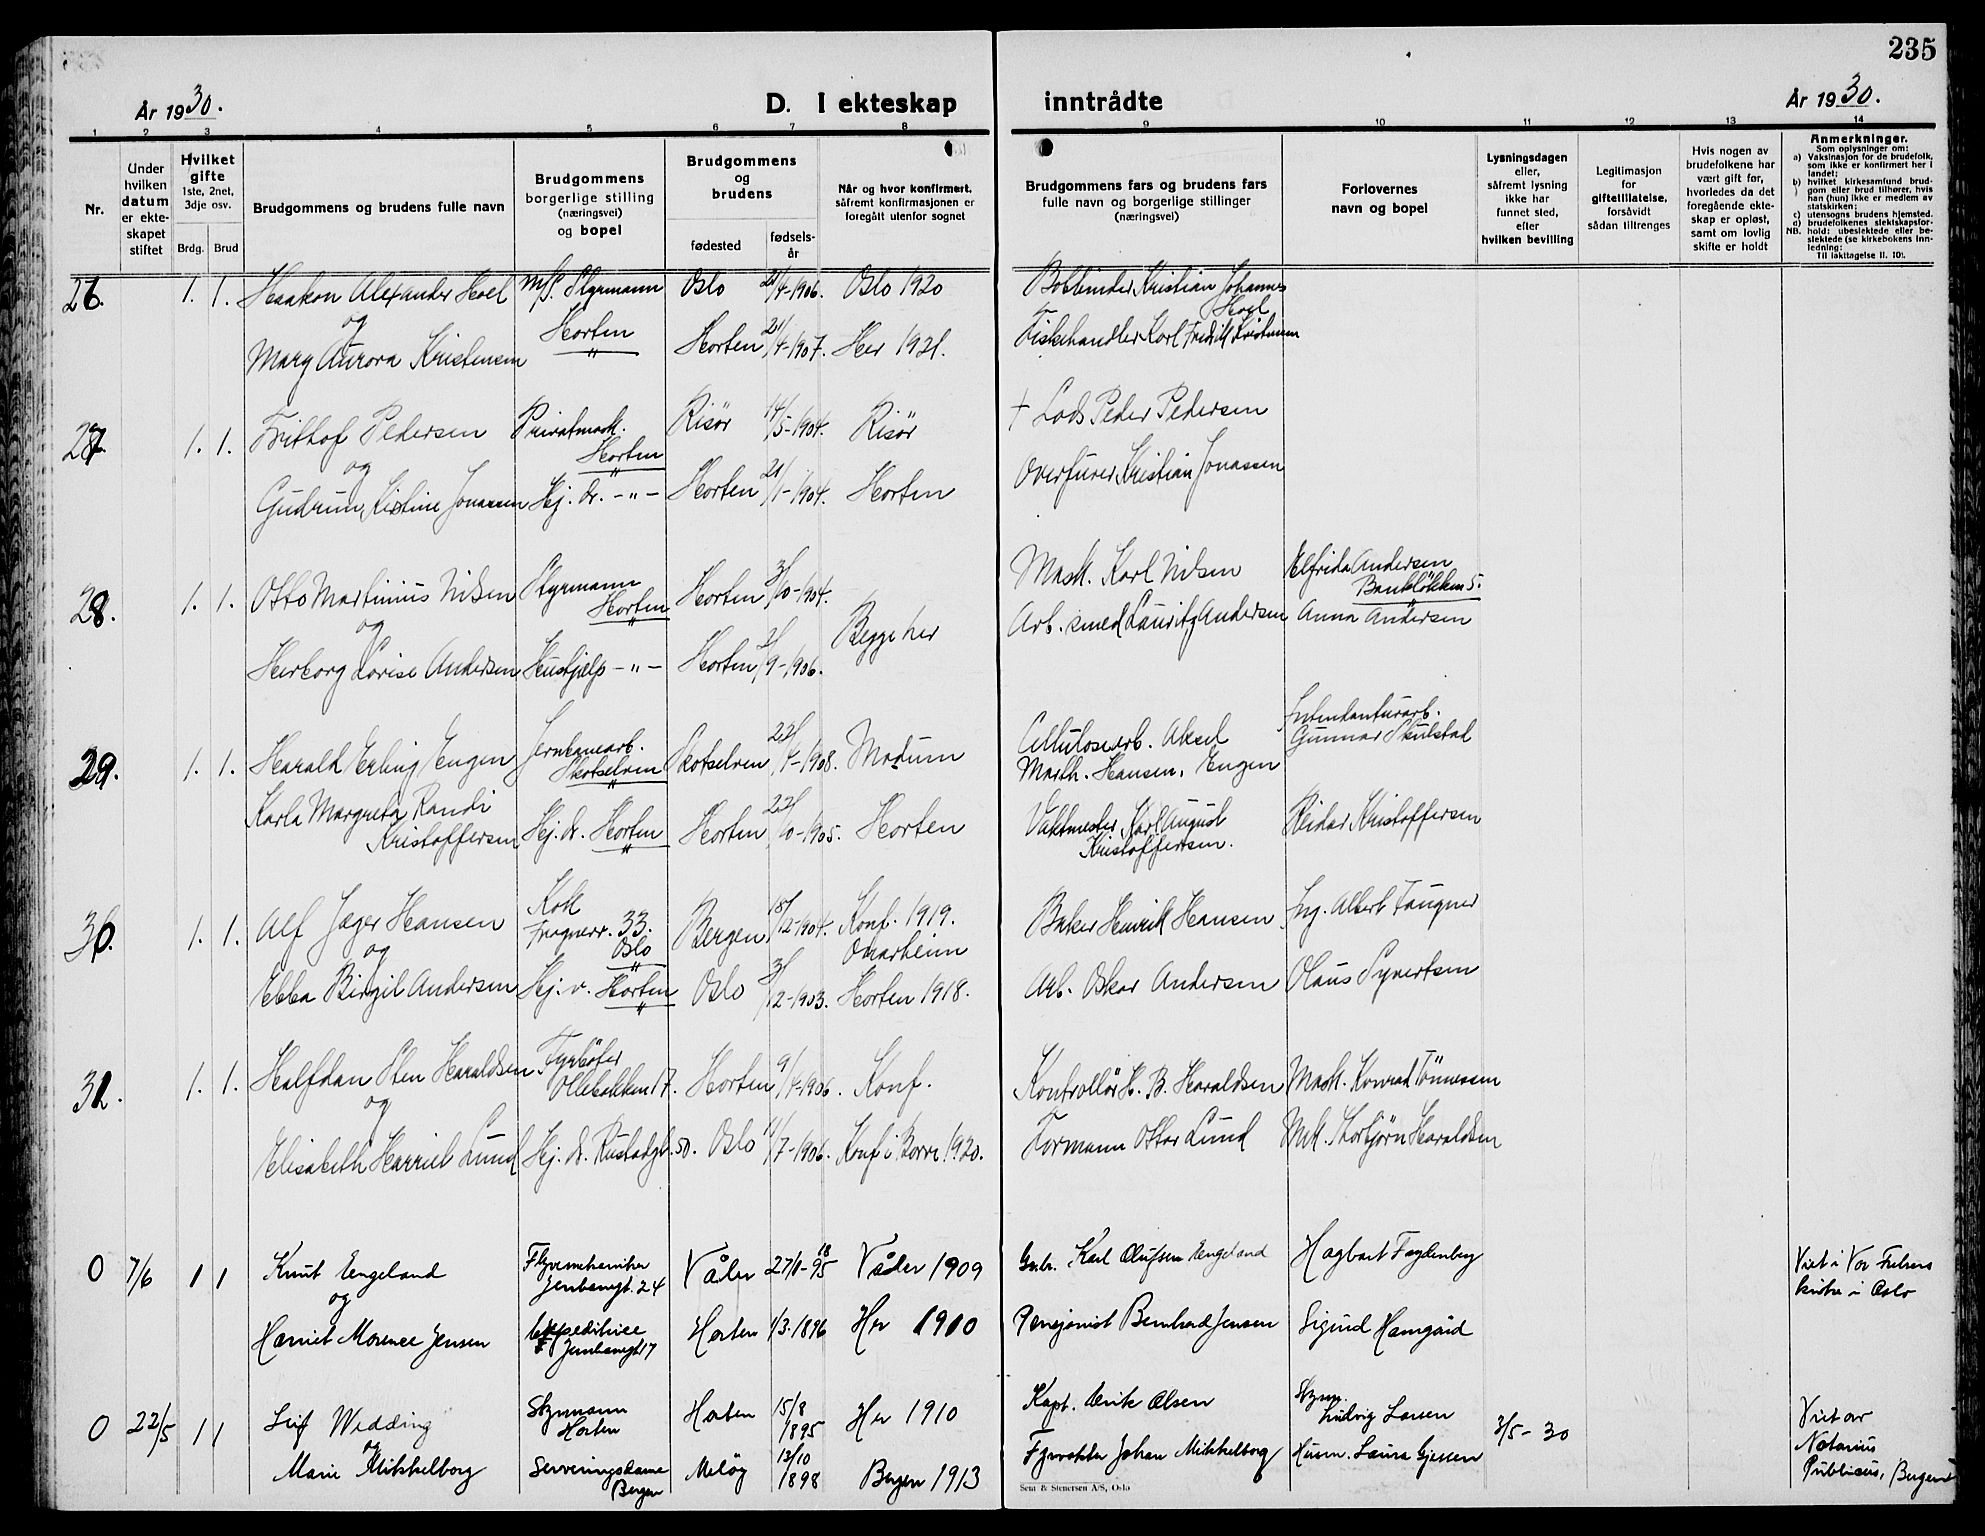 235
År 1930.
D. I ekteskap inntrådte
År 1930.
1 2 3 4 5 6 7 8 9 10 11 12 13 14
Nr.
Under hvilken datum er ekteskapet stiftet
Hvilket gifte
1ste, 2net, 3dje osv.
Brdg. Brud
Brudgommens og brudens fulle navn
Brudgommens borgerlige stilling (næringsvei) og bopel
Brudgommens og brudens
fødested
fødselsår
Når og hvor konfirmert, såfremt konfirmasjonen er foregått utenfor sognet
Brudgommens fars og brudens fars fulle navn og borgerlige stillinger (næringsvei)
Forlovernes navn og bopel
Lysningsdagen eller, såfremt lysning ikke har funnet sted, efter hvilken bevilling
Legitimasjon for giftetillatelse, forsåvidt sådan tiltrenges
Hvis nogen av brudefolkene har vært gift før, hvorledes da det foregående ekteskap er opløst, samt om lovlig skifte er holdt
Anmerkninger.
Som oplysninger om:
a) Vaksinasjon for de brudefolk, som ikke er konfirmert her i landet;
b) hvilket kirkesamfund brudgom eller brud tilhører, hvis han (hun) ikke er medlem av statskirken;
c) utensogns brudens hjemsted.
d) brudefolkenes slektskapsforhold: ubeslektede eller beslektede (se kirkebokens innledning:
NB. Til iakttagelse II. 10).
26. 1. 1. Haakon Alexander Hoel m/s. Styrmann Oslo 21/4-1906. Oslo 1920 Bokbinder Kristian Johannes Hoel
og Horten
Mary Aurora Kristensen " Horten 21/4-1907. Her 1921. Fiskehandler Karl Fredrik Kristensen
27. 1. 1. Frithof Pedersen Privatmask. Risør 14/5-1904. Risør † Lods Peder Pedersen
og Horten
Gudrun Kristine Jonassen Hj. dr. -"- Horten 21/1-1904. Horten Overfurer Kristian Jonassen
28. 1. 1. Otto Martinius Nilsen Styrmann Horten 3/10-1904. Mask. Karl Nilsen Elfrida Andersen
og Horten Begge her Bankløkken 5.
Herborg Lovise Andersen Hushjelp -"- Horten 2/9-1906. Arb. smed Lauritz Andersen Anna Andersen
29. 1. 1. Harald Erling Engen Jernbanearb. Skotselven 22/4-1908. Modum Cellulosearb. Aksel Marth. Hansen. Engen Intendanturarb. Gunnar Skulstad
Skotselven
Karla Margreta Randi Kristoffersen Hj. dr. Horten Horten 22/10-1905. Horten Vaktmester Karl August Kristoffersen. Reidar Kristoffersen
30. 1. 1. Alf Jæger Hansen Kokk Fragnerv. 33. Oslo Bergen 18/12-1904. Konf. 1919. Baker Henrik Hansen Ing. Albert Taugner
og
Ebba Birgit Andersen Hj. v. Horten Oslo 3/12-1903. Horten 1918. Arb. Oskar Andersen Olaus Syvertsen
31. 1. 1. Halfdan Sten Haraldsen Fyrbøter Ollebakken 17. Horten 9/4-1906. Konf. Kontrollør H. B. Haraldsen Mask. Konrad Tönnessen
og
Elisabeth Harriet Lund Hj. dr. Rustadgt. 50. Oslo 11/7-1906. Konf i Borre 1920. Formann Ottar Lund Mek. Thorbjørn Haraldsen
0 7/6 1 1 Knut Engeland Flyvemekaniker Jernbanegt. 24 Våler 27/1-1895 Våler 1909 Gabr. Karl Olufsen Engeland Hagbart Fagdenberg Viet i Vor Frelsers kirke i Oslo
og
Harriet Morence Jensen Expeditrice Jernbanegt 17 Horten 1/3-1896 Her 1910 Pensjonist Bernhard Jensen Sigurd Hamgård
0 22/5 1 1 Leif Wedding Styrmann Horten Horten 15/8 1895 Her 1910 Kapt. Erik Olsen Styrm. Ludvig Larsen 3/5-30 Viet av Notarius Publicus, Bergen
og
Marie Mikkelborg Serveringsdame Bergen Meløy 13/10 1898 Bergen 1913 Fyrvokter Johan Mikkelborg Husm. Laura Gjessen
Sem & Stenersen A/S, Oslo